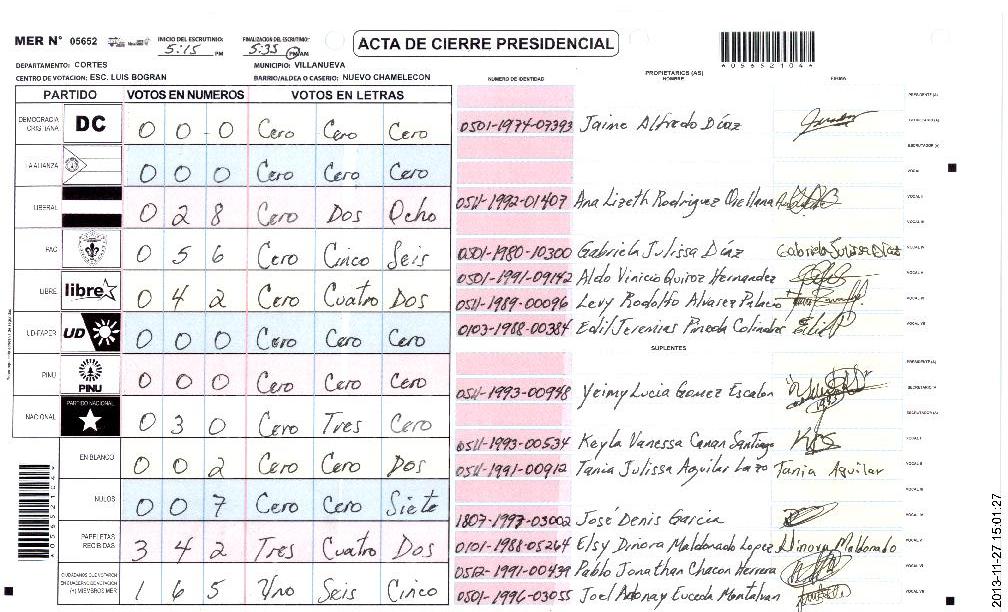 MER N° 05652 INICIO DEL ESCRUTINIO: 5:15 PM FINALIZACION DEL ESCRUTINIO: 5:35 PM AM
ACTA DE CIERRE PRESIDENCIAL
0565210 44
DEPARTAMENTO: CORTES MUNICIPIO: VILLANUEVA
CENTRO DE VOTACION: ESC. LUIS BOGRAN BARRIO/ALDEA O CASERIO: NUEVO CHAMELECON
NUMERO DE IDENTIDAD PROPIETARIOS (AS) NOMBRE FIRMA
PARTIDO VOTOS EN NUMEROS VOTOS EN LETRAS
DEMOCRACIA CRISTIANA DC 0 0 0 Cero Cero Cero
LA ALIANZA 0 0 0 Cero Cero Cero
LIBERAL 0 2 8 Cero Dos Ocho
PAC 0 5 6 Cero Cinco Seis
LIBRE libre 0 4 2 Cero Cuatro Dos
UD-FAPER UD 0 0 0 Cero Cero Cero
PINU PINU 0 0 0 Cero Cero Cero
NACIONAL PARTIDO NACIONAL 0 3 0 Cero Tres Cero
EN BLANCO 0 0 2 Cero Cero Dos
NULOS 0 0 7 Cero Cero Siete
PAPELETAS RECIBIDAS 3 4 2 Tres Cuatro Dos
CIUDADANOS QUE VOTARON EN CUADERNO DE VOTACION (+) MIEMBROS MER 1 6 5 Uno Seis Cinco
PRESIDENTE (A)
0501-1974-07393 Jaime Alfredo Díaz SECRETARIO (A)
ESCRUTADOR (A)
VOCAL I
0511-1992-01407 Ana Lizeth Rodriguez Orellana VOCAL II
VOCAL III
0501-1980-10300 Gabriela Julissa Díaz Gabriela Julissa Díaz VOCAL IV
0501-1991-09142 Aldo Vinicio Quiroz Hernandez VOCAL V
0511-1989-00096 Levy Rodolfo Alvarez Palacio VOCAL VI
0103-1988-00384 Edil Jeremias Pineda Colindres VOCAL VII
SUPLENTES
PRESIDENTE (A)
0511-1993-00948 Yeimy Lucia Gomez Escalon SECRETARIO/A
ESCRUTADOR (A)
0511-1993-00534 Keyla Vanessa Canan Santiago VOCAL I
0511-1991-00912 Tania Julissa Aguilar Lazo Tania Aguilar VOCAL II
VOCAL III
1807-1997-03002 José Denis Garcia VOCAL IV
0101-1988-05264 Elsy Dinora Maldonado Lopez Dinora Maldonado VOCAL V
0512-1991-00439 Pablo Jonathan Chacon Herrera VOCAL VI
0501-1996-03055 Joel Adonay Euceda Montalvan VOCAL VII
2013-11-27 15:01:27